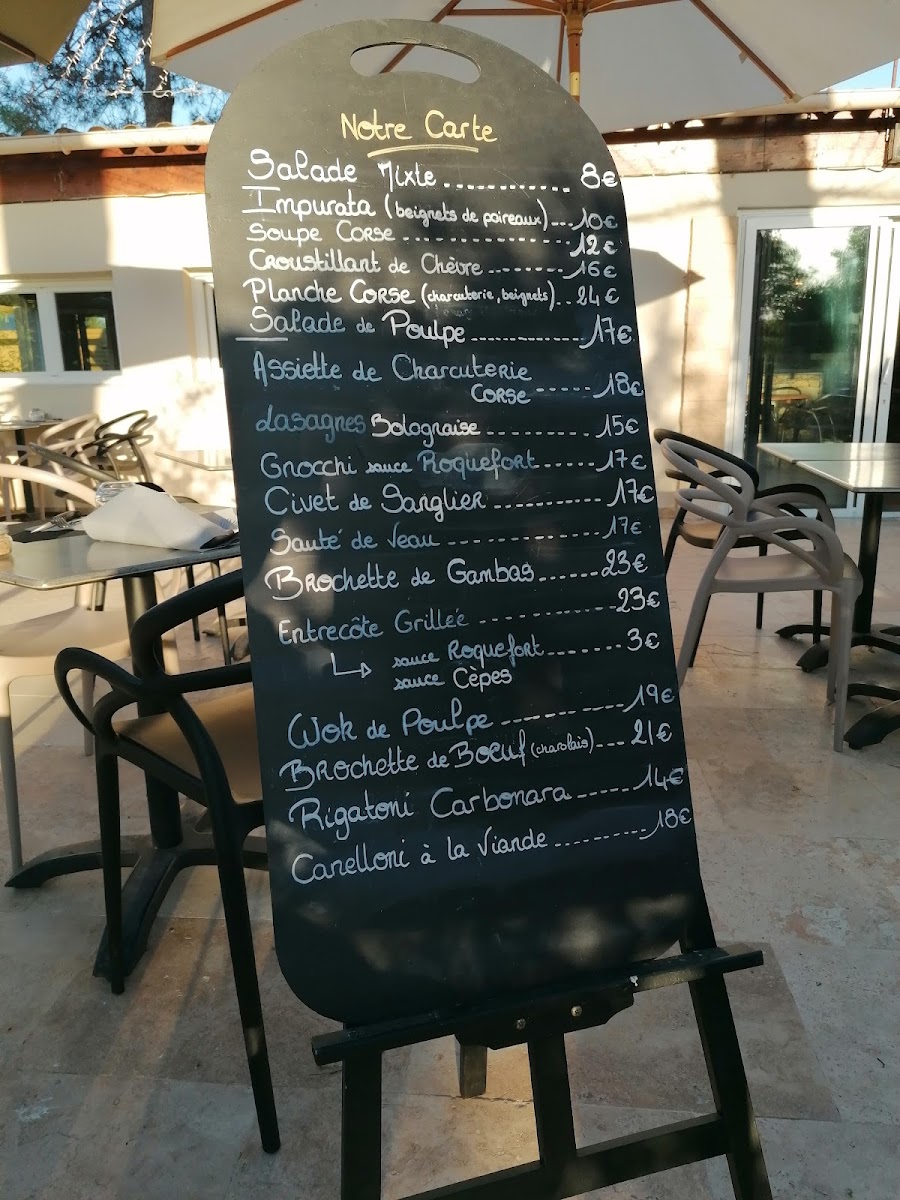 Notre Carte
Salade Mixte ............ 8€
Impurata (beignets de poireaux) ... 10€
Soupe Corse .................... 12€
Croustillant de Chèvre ......... 16€
Planche Corse (charcuterie, beignets) .. 24€
Salade de Poulpe ............. 17€
Assiette de Charcuterie
Corse ..... 18€
Lasagnes Bolognaise ............. 15€
Gnocchi sauce Roquefort ...... 17€
Civet de Sanglier ............ 17€
Sauté de Veau .................. 17€
Brochette de Gambas ...... 23€
Entrecôte Grillée .............. 23€
sauce Roquefort ....... 3€
sauce Cèpes
Wok de Poulpe ............ 19€
Brochette de Boeuf (charolais) ... 21€
Rigatoni Carbonara ...... 14€
Canelloni à la Viande .......... 18€